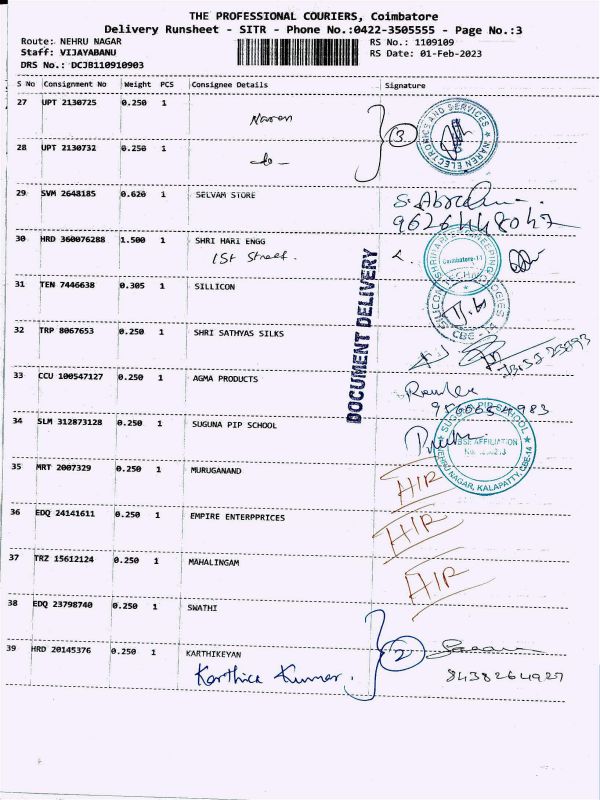 THE PROFESSIONAL COURIERS, Coimbatore
Delivery Runsheet - SITR - Phone No.:0422-3505555 - Page No.:3
Route: NEHRU NAGAR
RS No.: 1109109
Staff: VIJAYABANU
RS Date: 01-Feb-2023
DRS No.: DCJB110910903
S No Consignment No Weight PCS Consignee Details Signature
27 UPT 2130725 0.250 1 Naren
3
NAREN ELECTRONICS AND SERVICES
28 UPT 2130732 0.250 1 -do-
29 SVM 2648185 0.620 1 SELVAM STORE
30 HRD 360076288 1.500 1 SHRI HARI ENGG
1st Street.
Coimbatore-14
DOCUMENT DELIVERY
31 TEN 7446638 0.305 1 SILLICON
CBE-14
32 TRP 8067653 0.250 1 SHRI SATHYAS SILKS
33 CCU 100547127 0.250 1 AGMA PRODUCTS
34 SLM 312873128 0.250 1 SUGUNA PIP SCHOOL
SUGUNA PIP SCHOOL
CBSE AFFILIATION
NEHRU NAGAR, KALAPATTY, CBE-14
35 MRT 2007329 0.250 1 MURUGANAND
HIR
36 EDQ 24141611 0.250 1 EMPIRE ENTERPPRICES
HIR
37 TRZ 15612124 0.250 1 MAHALINGAM
HIR
38 EDQ 23798740 0.250 1 SWATHI
39 HRD 20145376 0.250 1 KARTHIKEYAN
2
Karthick Kumar.
8438264927